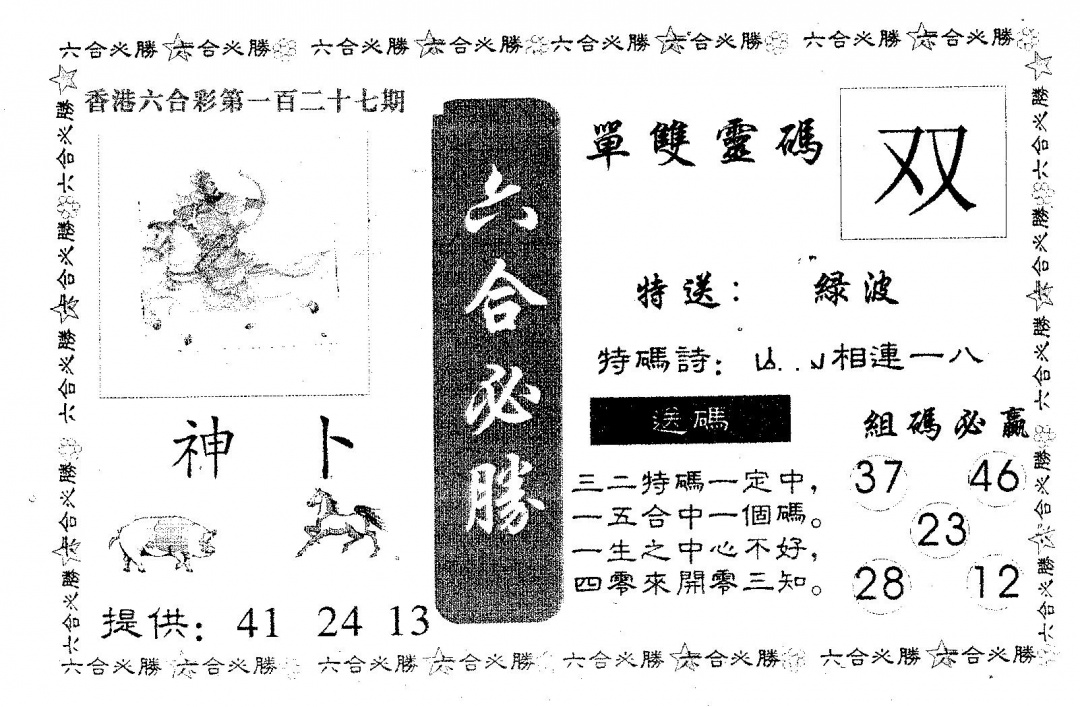 六合必勝 六合必勝 六合必勝 六合必勝 六合必勝 六合必勝 六合必勝 六合必勝
六合必勝 六合必勝 六合必勝 六合必勝 六合必勝
香港六合彩第一百二十七期
神卜
提供：41 24 13
六合必勝
單雙靈碼
双
特送：綠波
特碼詩：相連一八
送碼
三二特碼一定中，
一五合中一個碼。
一生之中心不好，
四零來開零三知。
組碼必贏
37 46
23
28 12
六合必勝 六合必勝 六合必勝 六合必勝 六合必勝
六合必勝 六合必勝 六合必勝 六合必勝 六合必勝 六合必勝 六合必勝 六合必勝